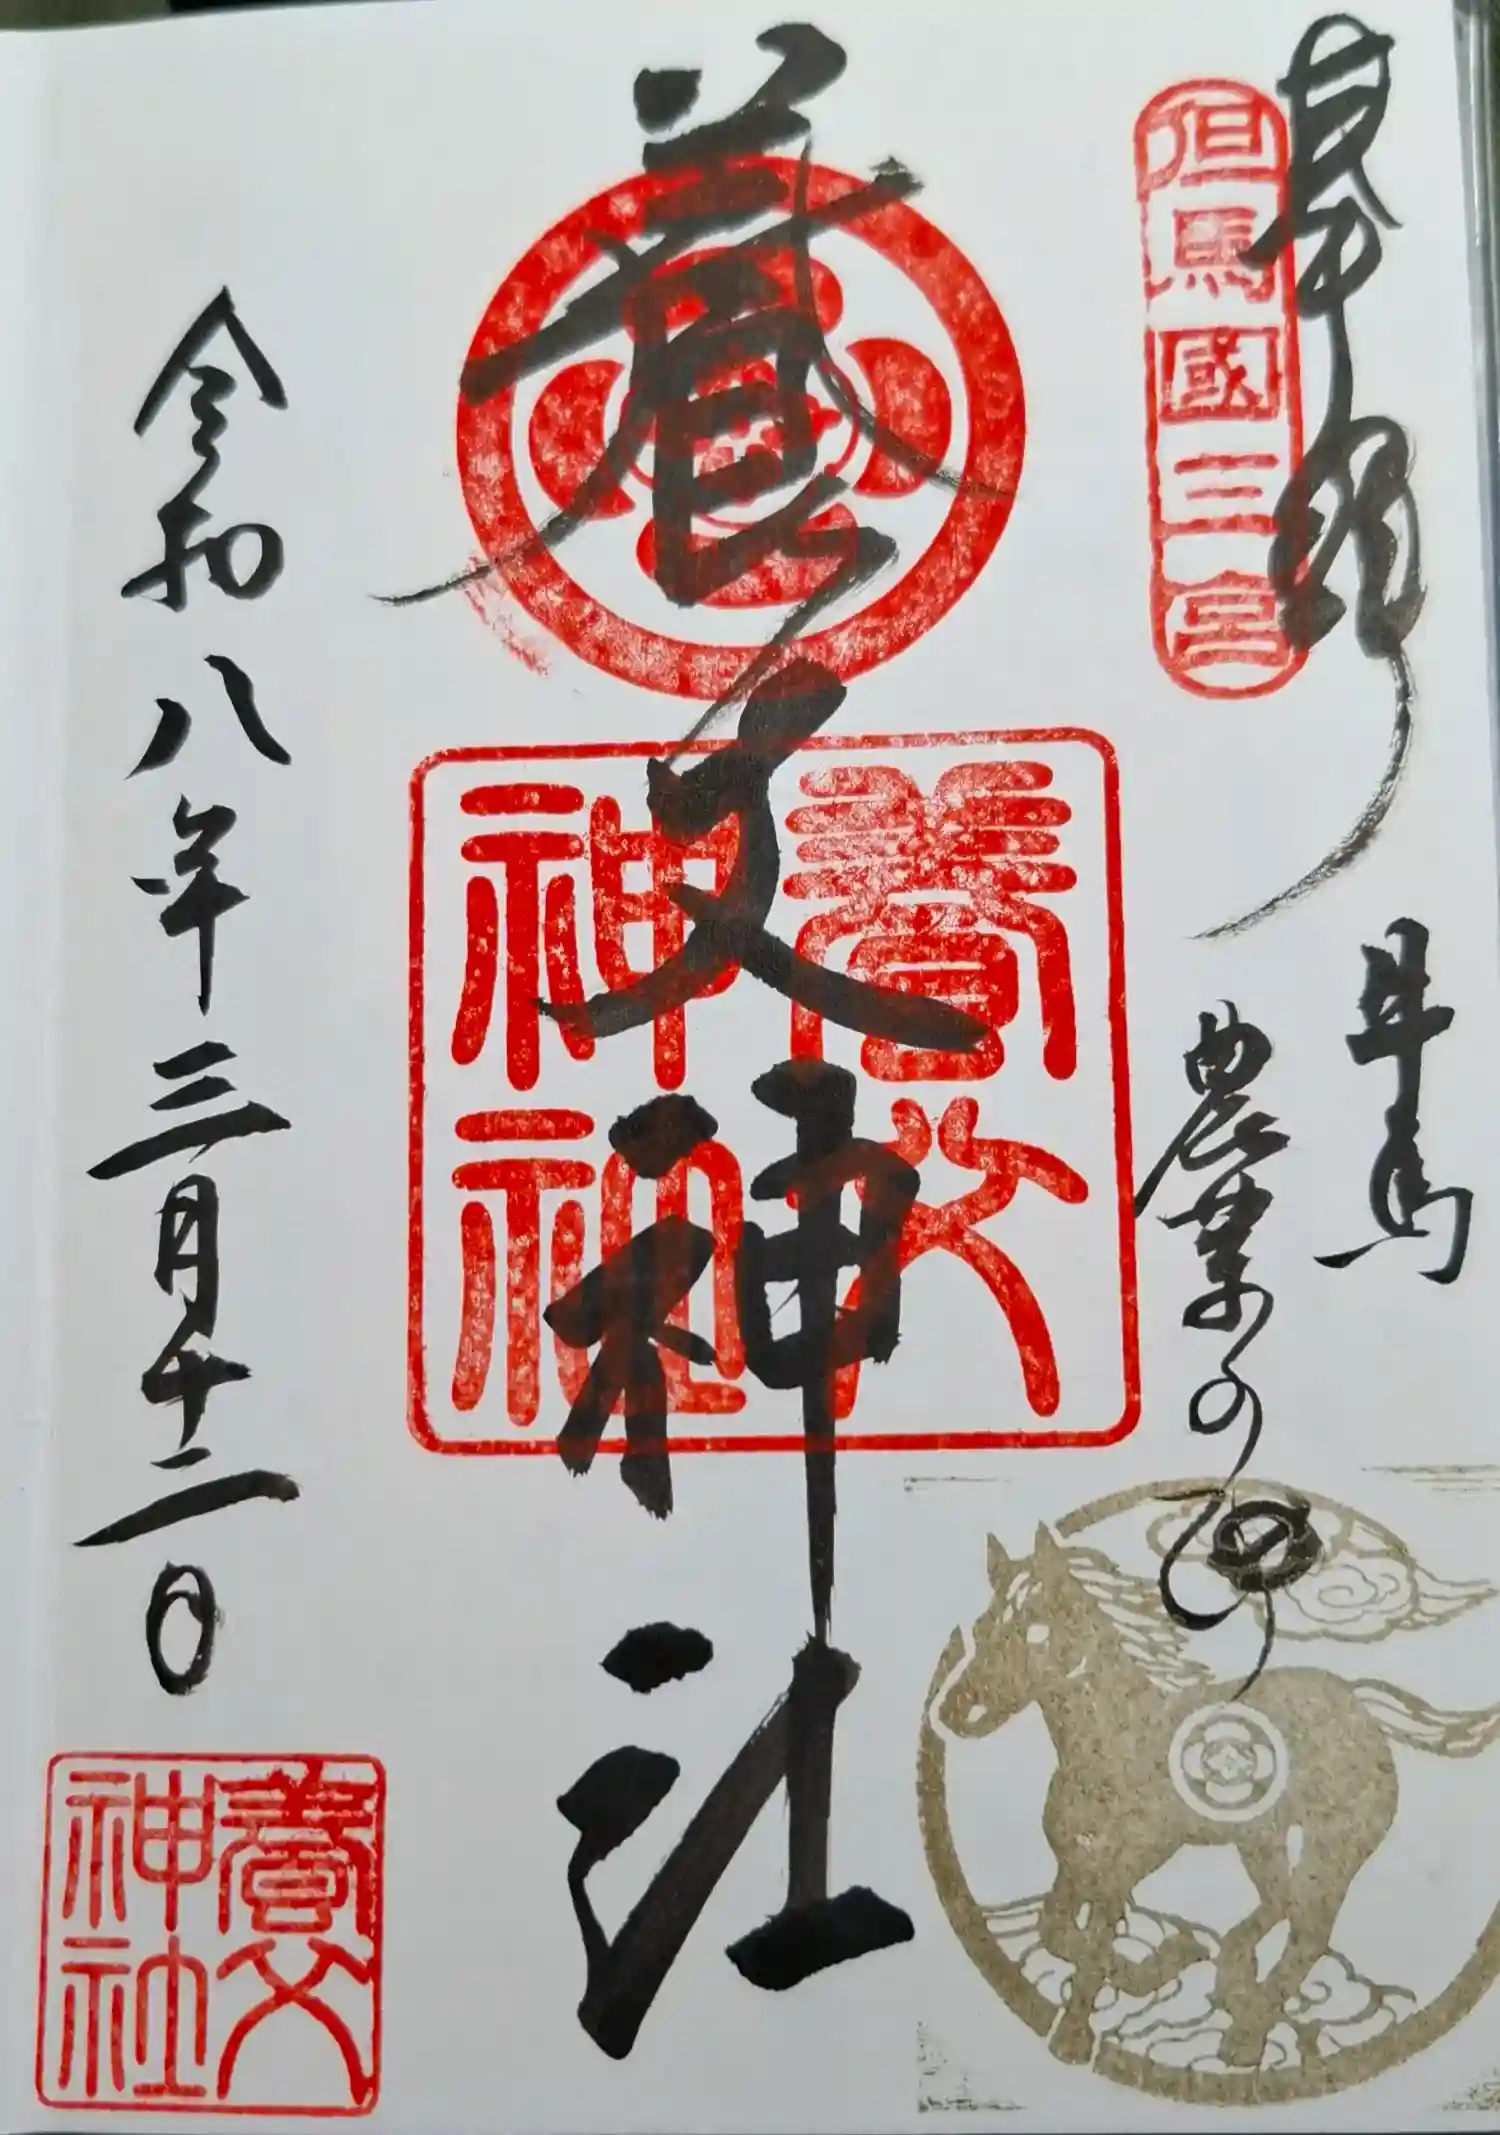 奉拝
但馬國三宮
但馬
農業の神
養父神社
養父
神社
令和八年三月十二日
養父
神社